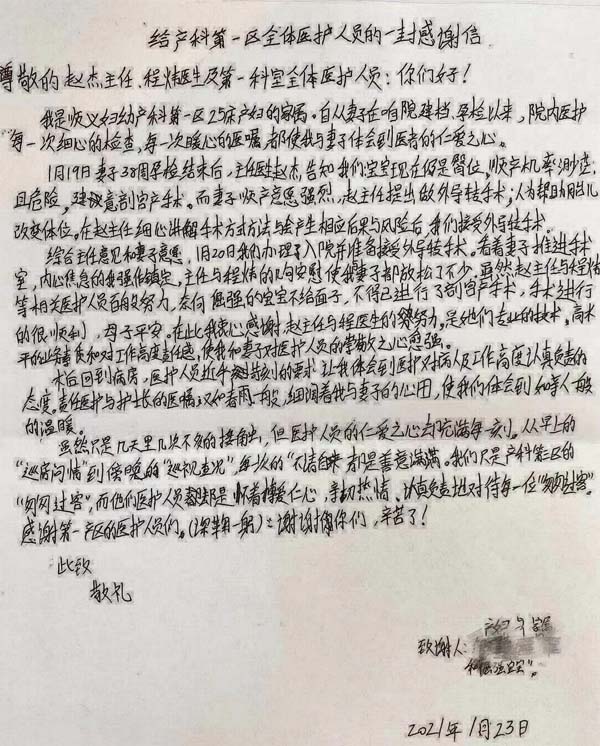 给产科第一区全体医护人员的一封感谢信
尊敬的赵杰主任、程炜医生及第一科室全体医护人员:你们好!
我是顺义妇幼产科第一区25床产妇的家属。自从妻子在响院建档、孕检以来,院内医护
每一次细心的检查,每一次暖心的医嘱,都使我与妻子体会到医者的仁爱之心。
1月19日妻子38周孕检结束后,主任医生赵杰,告知我们宝宝现在仍是臀位,顺产机率渺茫
且危险,建议剖宫产手术。而妻子顺产意愿强烈,赵主任提出做外导转手术;人为帮助胎儿
改变体位。在赵主任细心讲解手术方式方法与会产生相应后果与风险后,我们接受外导转手术。
综合主任意见和妻子意愿,1月20日我们办理了入院并准备接受外导转手术。看着妻子推进手术
室,内心焦急的我强作镇定,主任与程炜的几句安慰使我妻子都放松了不少,虽然赵主任与程炜
等相关医护人员百般努力,奈何倔强的宝宝不给面子,不得已进行了剖宫产手术,手术进行
的很顺利,母子平安。在此我衷心感谢,赵主任与程医生的努力,是她们专业的技术,高水
平的业务素质和对工作高度责任感,使我和妻子对医护人员的崇敬之心愈强。
术后回到病房,医护人员近乎苛刻的要求让我体会到医护对病人及工作高度认真负责的
态度。责任医护与护长的医嘱又如春雨一般,细润着我与妻子的心田,使我们体会到如亲人般
的温暖。
虽然只是几天里几次不多的接触,但医护人员的仁爱之心却充满每一刻。从早上的
“巡房问情”到傍晚的“巡视查况”,每次的“不请自来”都是善意满满。我们只是产科第一区的
“匆匆过客”,而他们医护人员都是怀着博爱仁心,亲切热情,认真负责地对待每一位“匆匆过客”。
感谢第一产区的医护人员们。(深鞠一躬)谢谢你们,辛苦了!
此致
敬礼
致谢人:产妇与家属
和“倔强宝宝”。
2021年1月23日